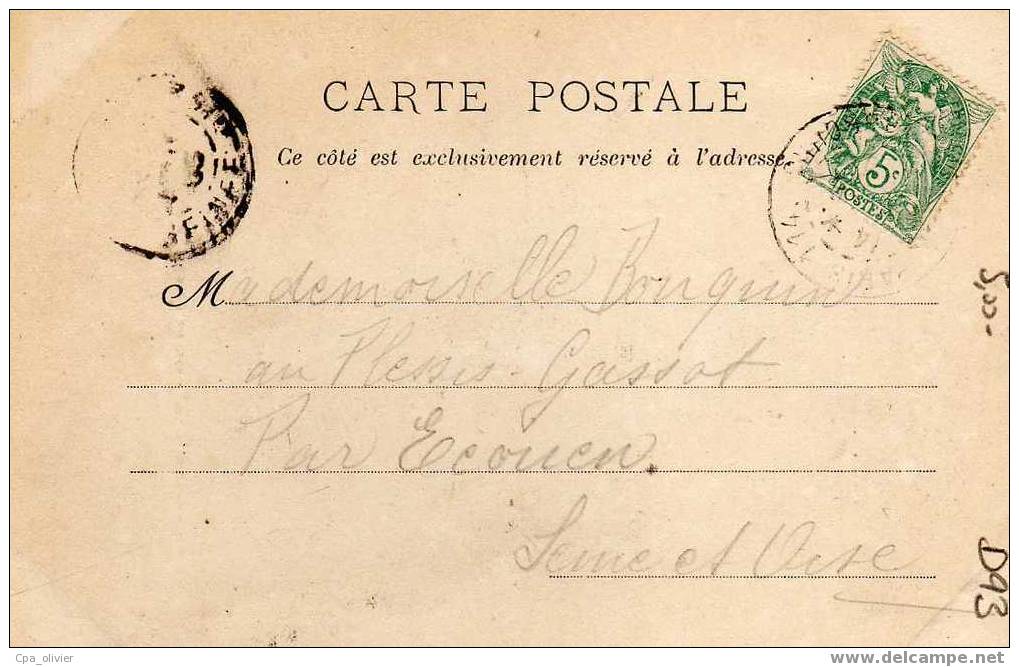 CARTE POSTALE
Ce côté est exclusivement réservé à l'adresse.
5c
POSTES
SEINE
Mademoiselle Bourquin
au Plessis-Gassot
Par Ecouen.
Seine et Oise
5,00-
D93
Cpa_olivier
www.delcampe.net